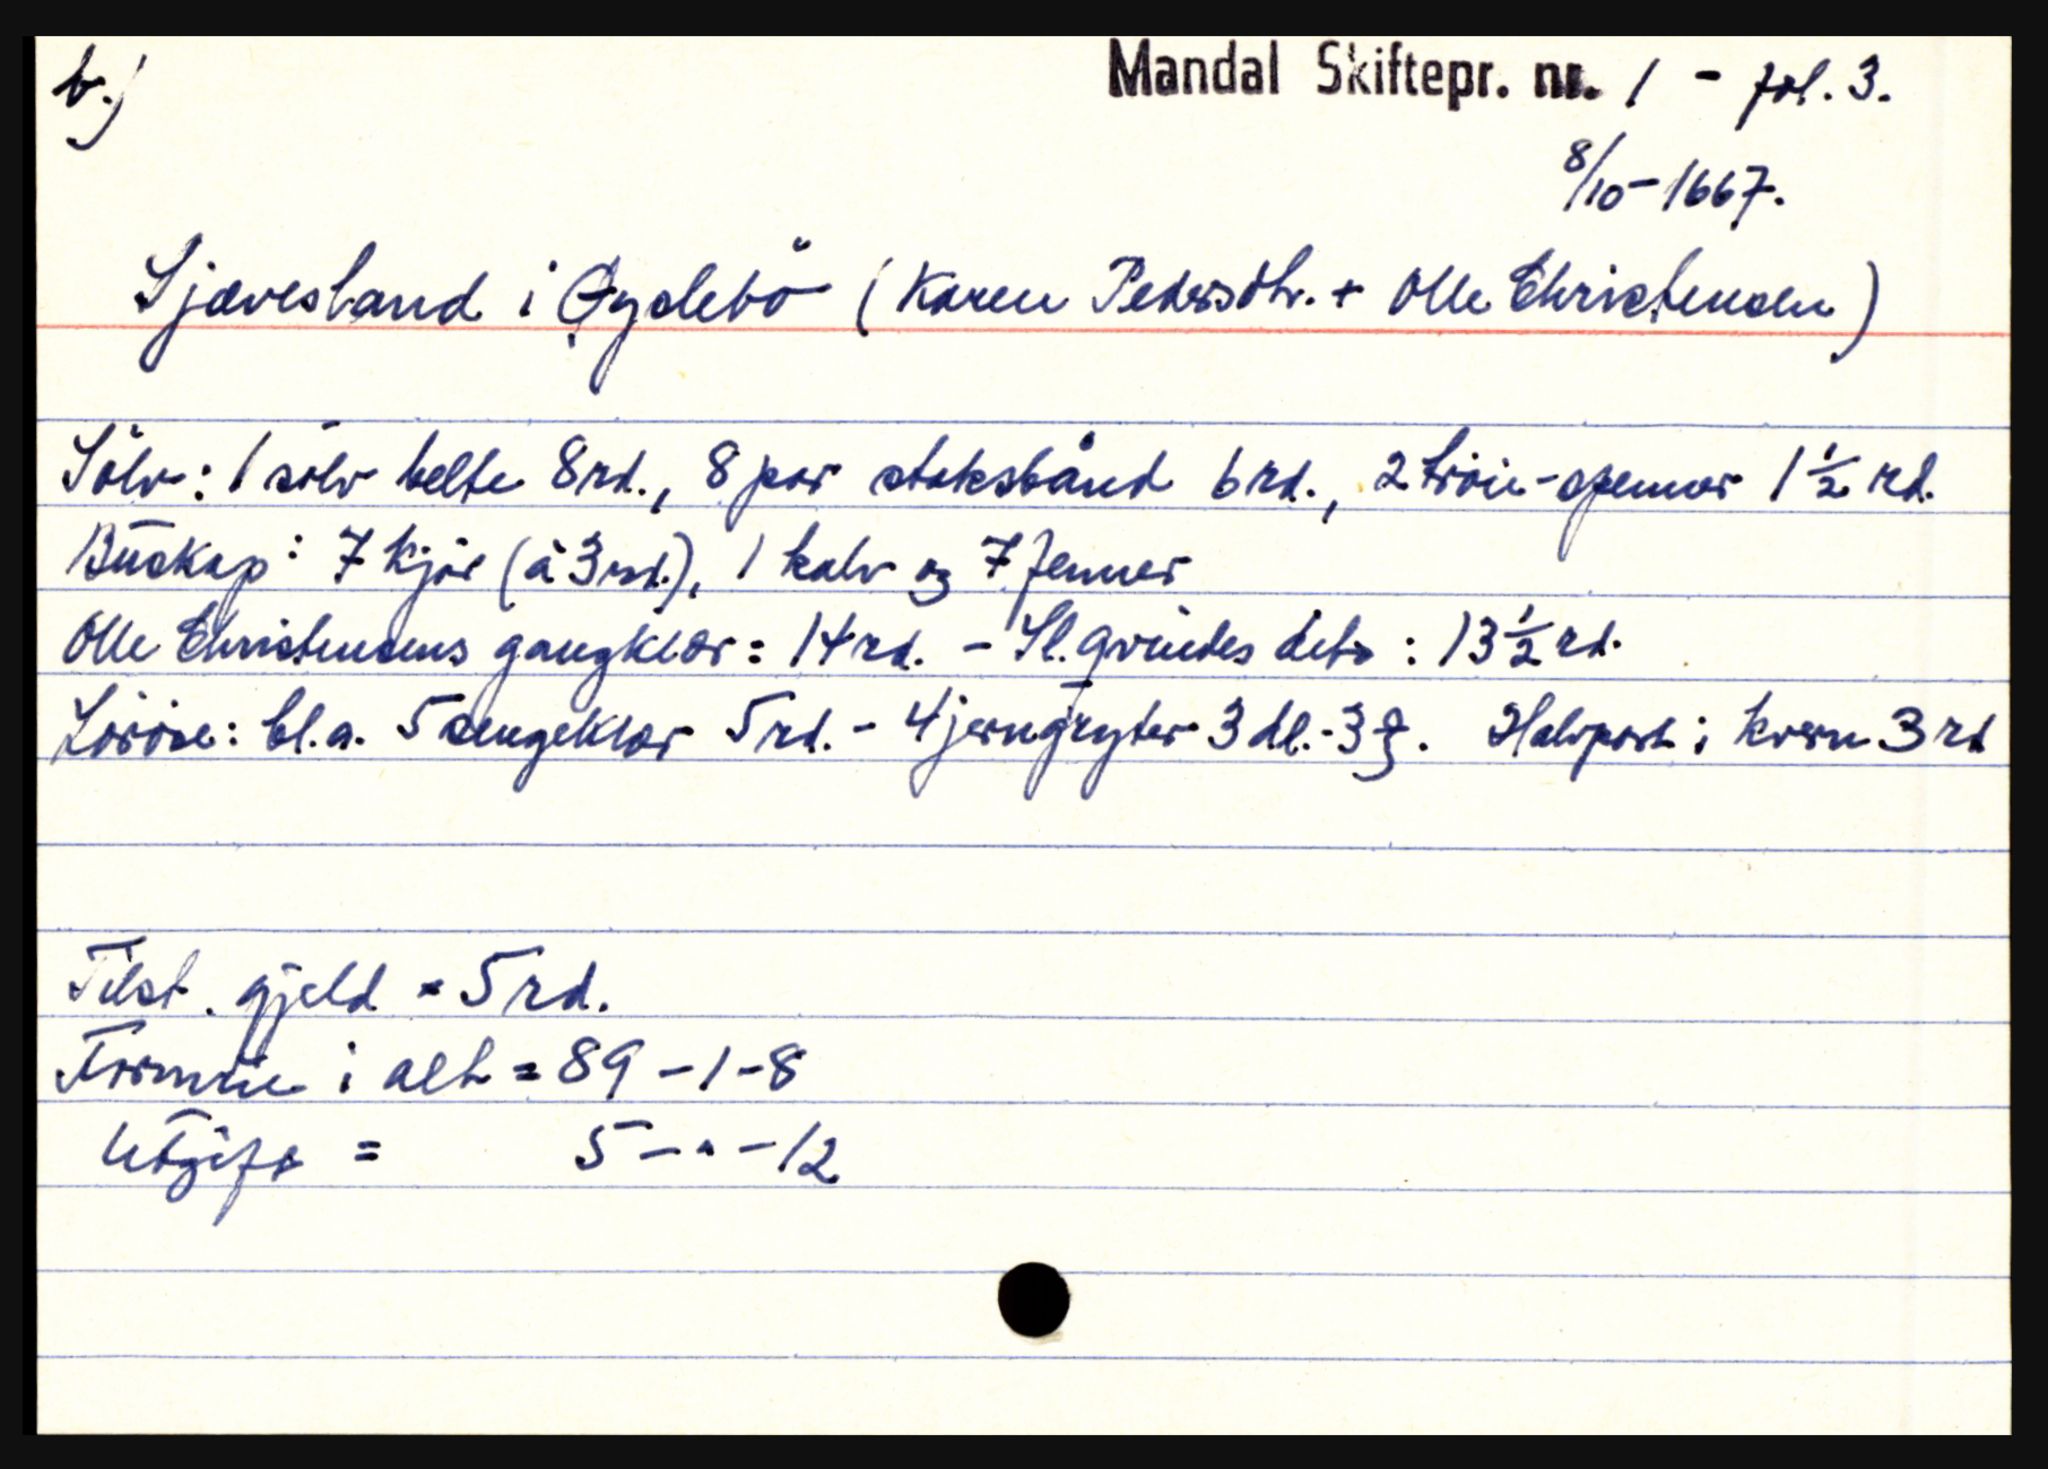 b.)
Mandal Skiftepr. nr. 1 - fol. 3.
8/10-1667.
Sjævesland i Øyslebö (Karen Pedersdtr. + Olle Christensen)
Sölv: 1 sölv belte 8 rd., 8 par staksbånd 6 rd., 2 tröie-spenner 1 1/2 rd.
Buskap: 7 kjör (à 3 rd.), 1 kalv og 7 fenner
Olle Christensens gangklær = 14 rd. - Sl. qvindes dito : 13 1/2 rd.
Lösöre: bl.a. 5 sengeklær 5 rd. - 4 jerngryter 3 dl. - 3 ƺ. Halvpart i kvern 3 rd
Tilst. gjeld = 5 rd.
Formue i alt = 89 - 1 - 8
Utgift = 5 - " - 12